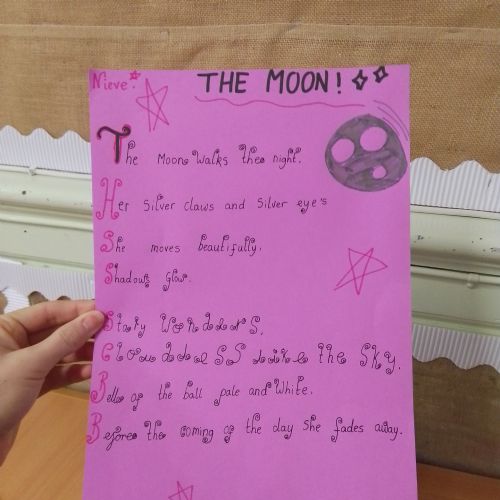 Nieve!
THE MOON!
The Moon Walks the night.
Her Silver claws and Silver eye's
She moves beautifully.
Shadows Glow.
Stary Wonders,
Cloudless like the Sky.
Belle of the ball pale and White.
Before the coming of the day She fades away.